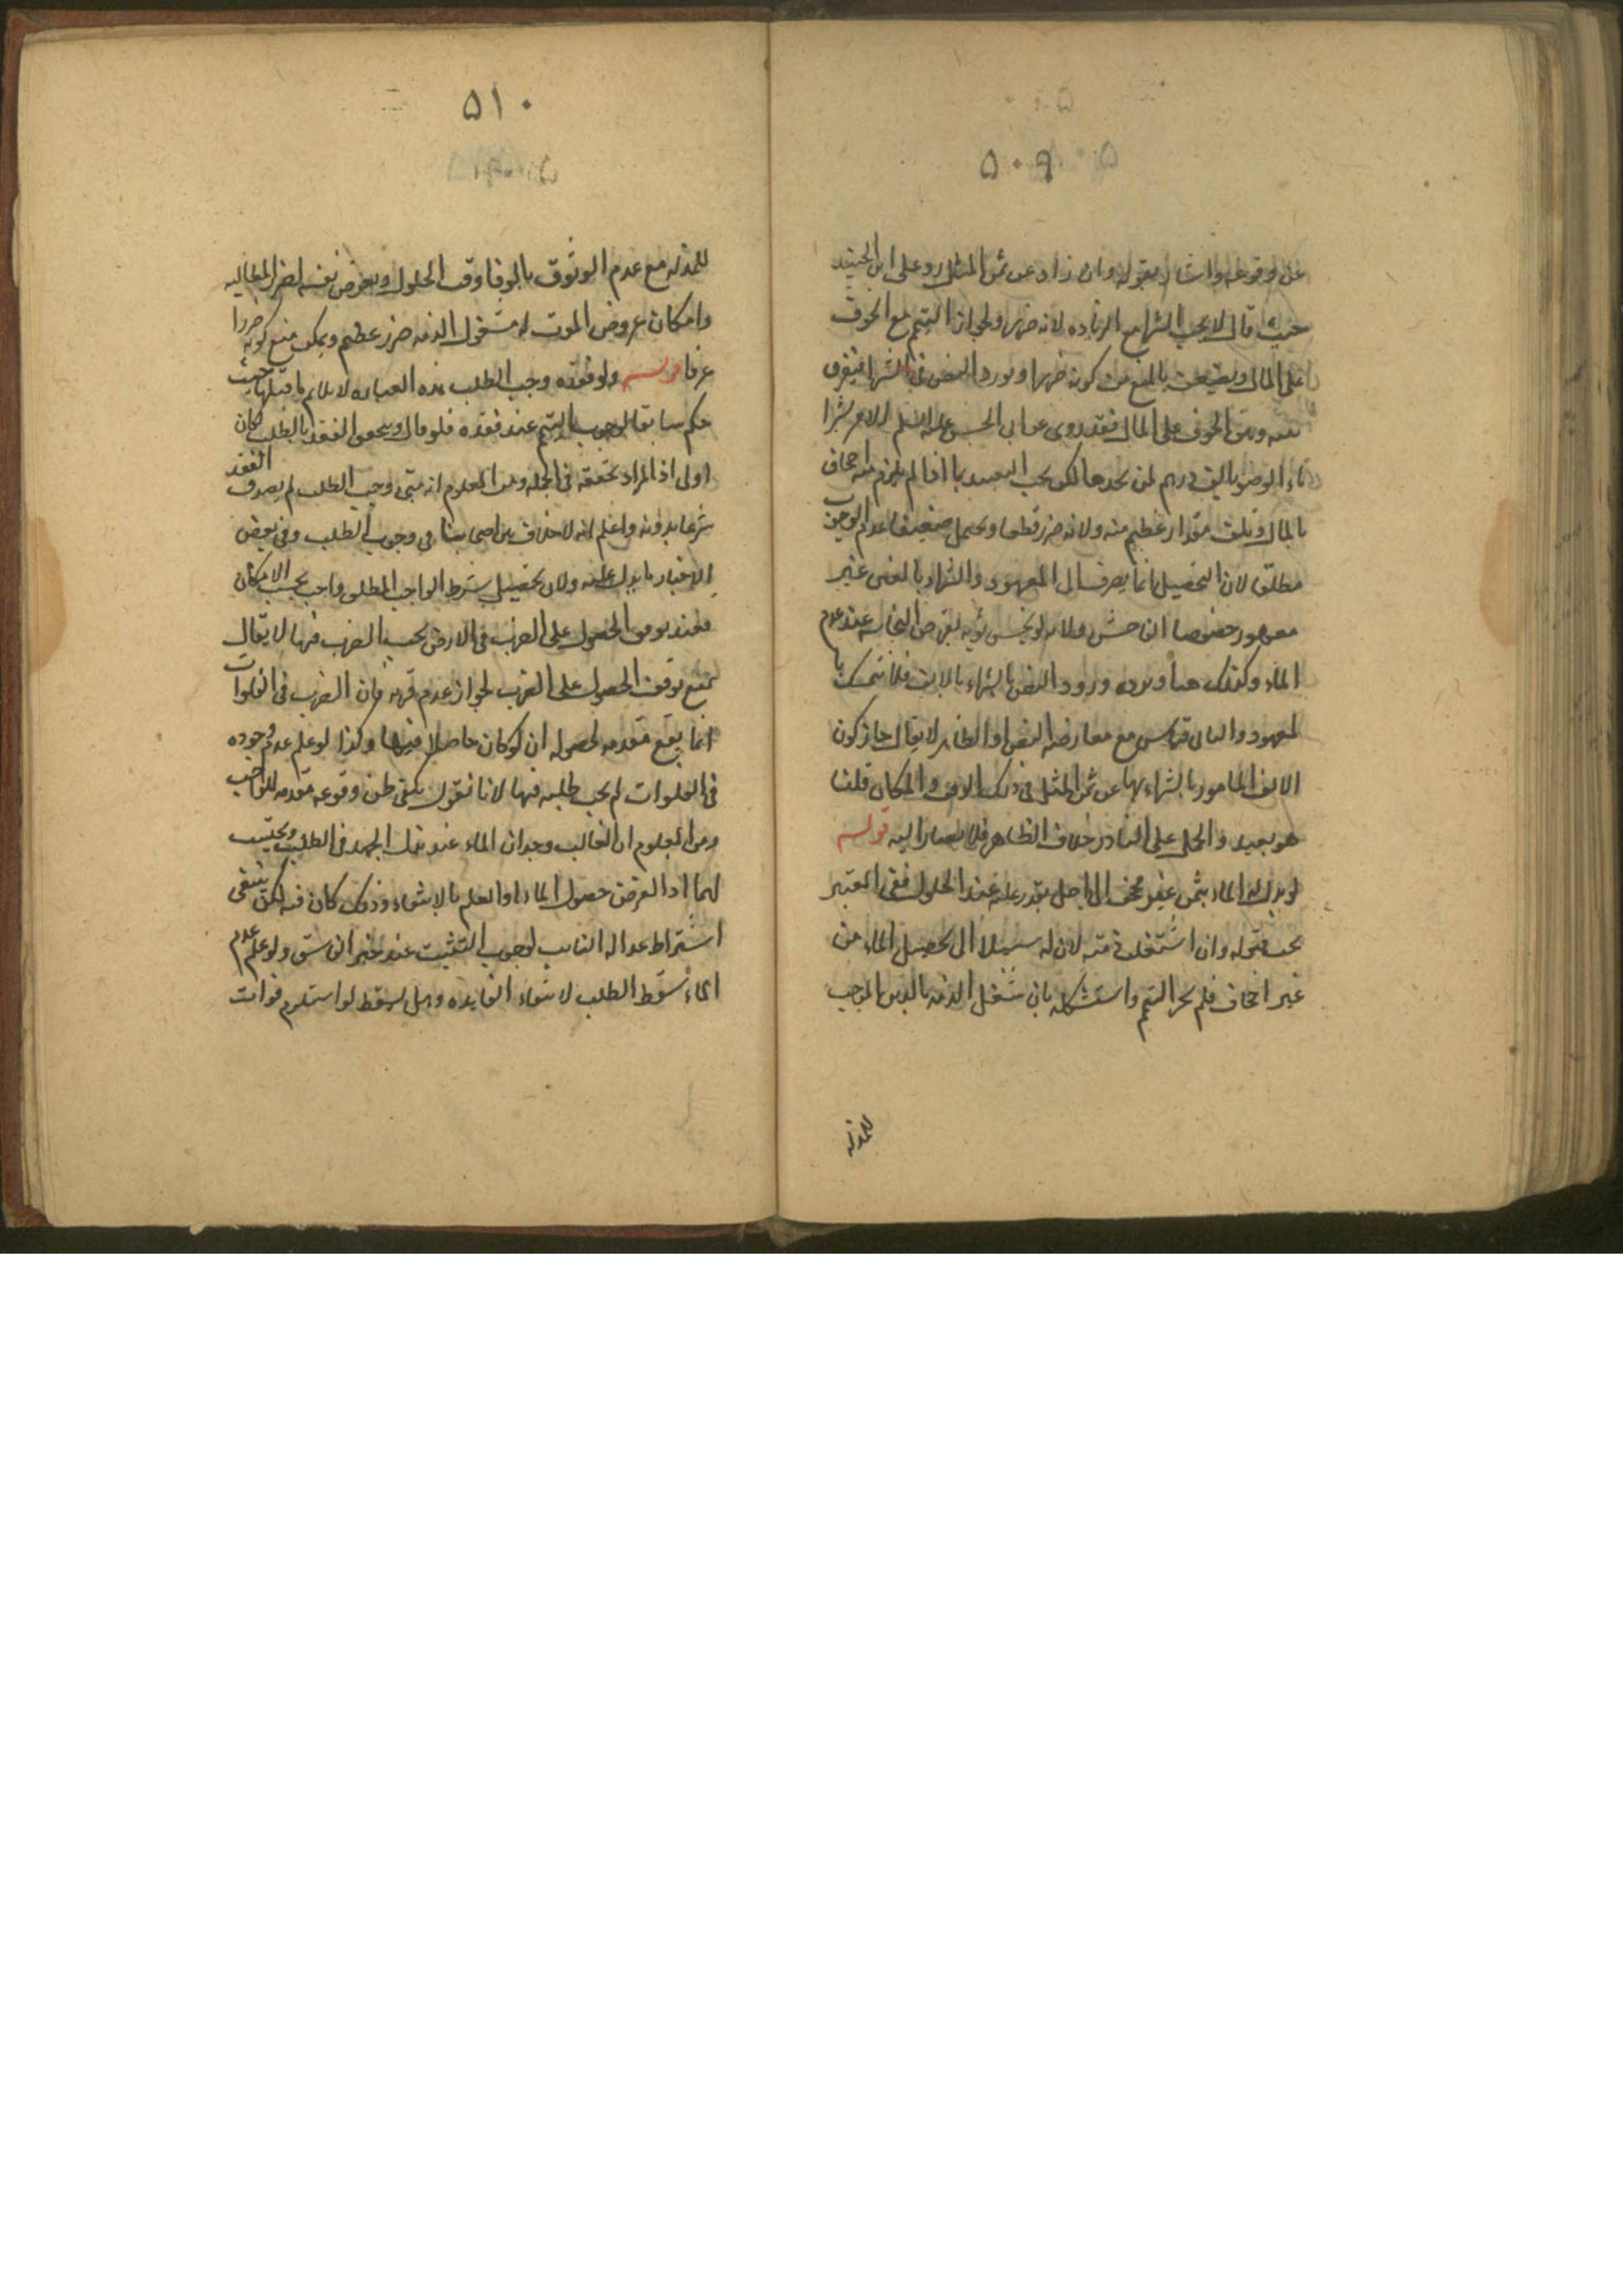 ۵۰۹
عن وقوعه واشار بقوله وان زاد عن ثمن المثل رد على ابن الجنيد
حيث قال لا يجب الشراء مع الزيادة لانه ضرر ولجواز التيمم مع الخوف
على المال ويضعف بالمنع من كونه ضررا وورود النص في الشرا فيفرق
بينه وبين الخوف على المال فقد روى عن ابى الحسن عليه السلم الامر بشرا
ماء الوضو بالف درهم لمن يجدها لكن يجب التقييد بما اذا لم يلزم منه اجحاف
بالمال وتلف مقدار عظيم منه ولانه ضرر قطعا ويحتمل ضعيفا عدم الوجوب
مطلقا لان التحصيل انما يصرف الى المعهود والشراء بالغبن غير
معهود خصوصا الفاحش ولانه لو نجس ثوبه بقرض النجاسه عند عدم
الماء وكذلك هنا ويرده ورود النص بالشراء بالالف فلا تمسك با
لمعهود والثانى قياس مع معارضة النص او الظاهر لا يقال جاز كون
الالف المامور بالشراء بها عن ثمن المثل فى ذلك الوقت والمكان قلنا
هو بعيد والحمل على النادر خلاف الظاهر فلا يصار اليه قوله
لو بذل له الماء بثمن غير مجحف الى اجل يقدر عليه عند الحلول ففى المعتبر
يجب قبوله وان اشتغلت ذمته لان له سبيلا الى تحصيل الماء من
غير اجحاف فلم يجز التيمم واستشكله بان شغل الذمه بالدين الموجب
للمذله
۵۱۰
للمذله مع عدم الوثوق بالوفا وقت الحلول وتعرض نفسه لضرر المطالبه
وامكان عروض الموت له مشغول الذمه ضرر عظيم ويمكن منع كونه ضررا
عرفا قوله ولو فقده وجب الطلب هذه العباره لا يلايم ما قبلها حيث
حكم سابقا بوجوب التيمم عند فقده فلو قال ويتحقق الفقد بالطلب كان
اولى اذ المراد تحققه فى الجمله ومن المعلوم انه متى وجب الطلب لم يصدق الفقد
شرعا بدونه واعلم انه لا خلاف بين اصحابنا فى وجوب الطلب وفى بعض
الاخبار ما يدل عليه ولان تحصيل شرط الواجب المطلق واجب بحسب الامكان
فعند توقف الحصول على الضرب فى الارض يجب الضرب فيها لا يقال
نمنع توقف الحصول على الضرب لجواز عدم قربه فان الضرب فى الفلوات
انما يقع مقدمه لحصوله ان لو كان حاصلا فيها وكذا لو علم عدم وجوده
فى الفلوات لم يجب طلبه فيها لانا نقول يكفى ظن وقوعه مقدمه للواجب
ومن المعلوم ان الغالب وجدان الماء عند بذل الجهد فى الطلب
لهما اذ الغرض حصول الماء او العلم بالانتفاء وذلك كاف فيه لكن ينبغى
اشتراط عداله النائب لوجوب التثبت عند خبر الفاسق ولو علم عدم
الماء سقط الطلب لانتفاء الفايده وهل يسقط لو استلزم فوات